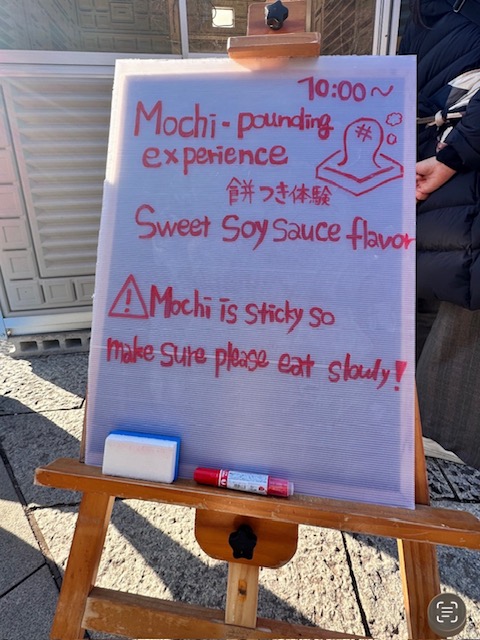 10:00〜
Mochi-pounding
experience
餅つき体験
Sweet Soy Sauce flavor
Mochi is sticky so
make sure please eat slowly!